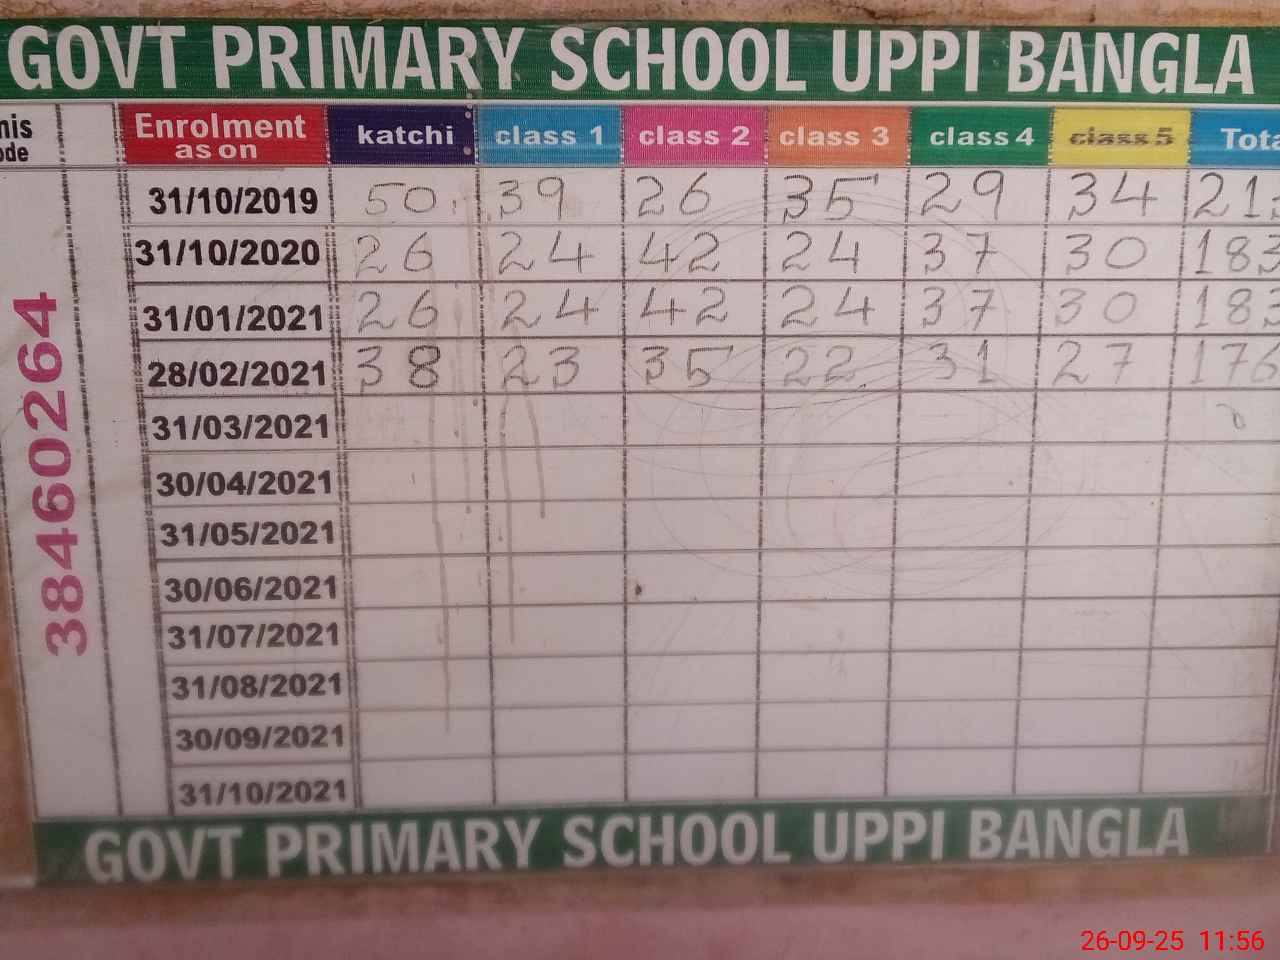 GOVT PRIMARY SCHOOL UPPI BANGLA
Enrolment as on katchi class 1 class 2 class 3 class 4 class 5
31/10/2019 50 39 26 35 29 34
31/10/2020 26 24 42 24 37 30 183
31/01/2021 26 24 42 24 37 30 183
28/02/2021 38 23 35 22 31 27 176
31/03/2021
30/04/2021
31/05/2021
30/06/2021
31/07/2021
31/08/2021
30/09/2021
31/10/2021
38460264
GOVT PRIMARY SCHOOL UPPI BANGLA
26-09-25 11:56